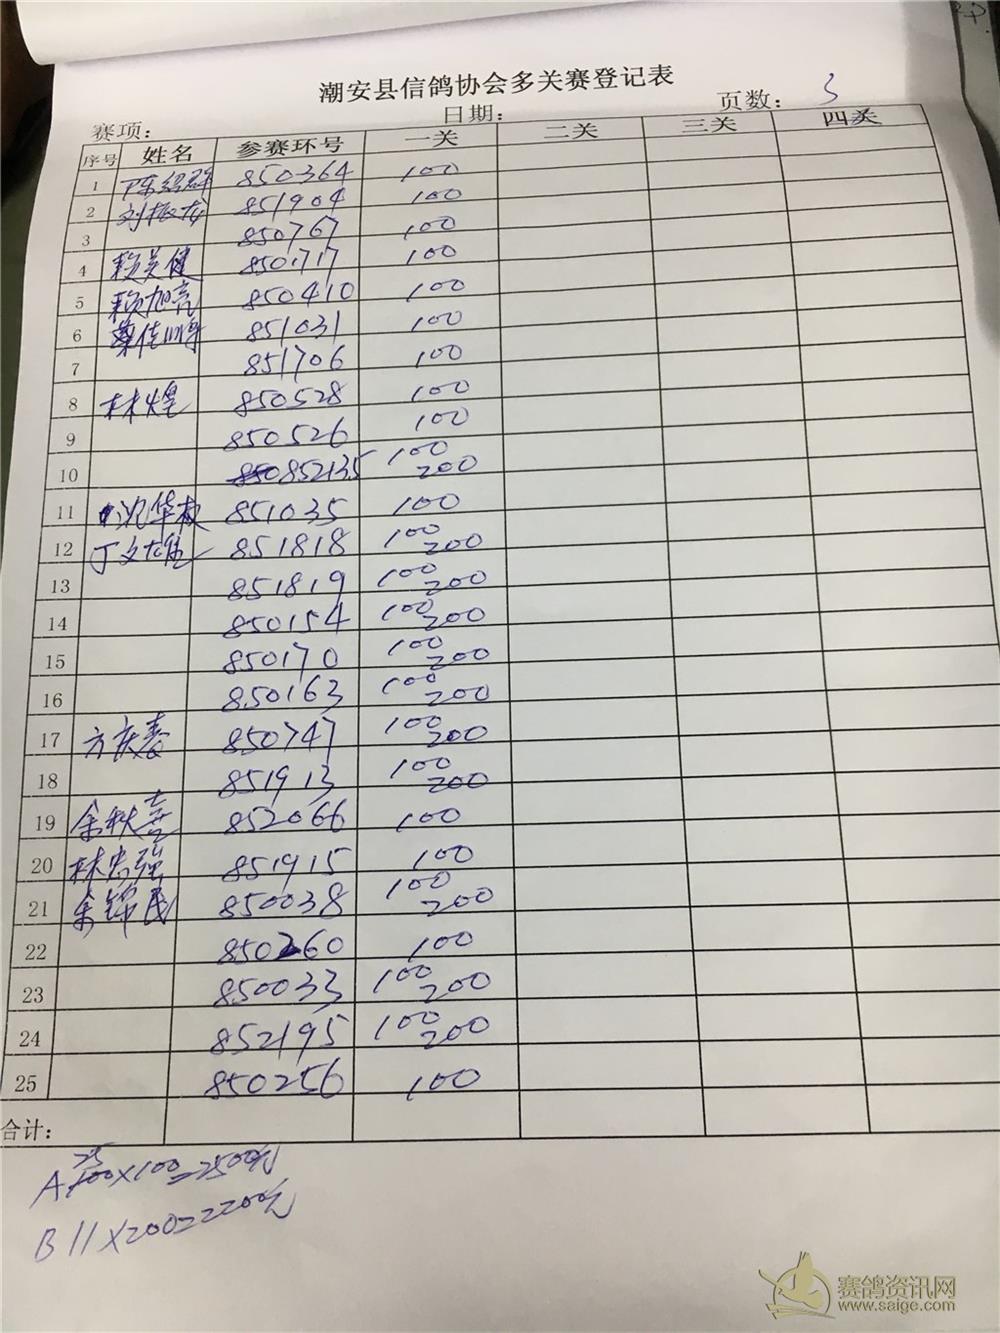 潮安县信鸽协会多关赛登记表
赛项: 日期: 页数: 3
序号 姓名 参赛环号 一关 二关 三关 四关
1 陈绍群 850364 100
2 刘振龙 851904 100
3 850767 100
4 赖关健 850717 100
5 赖旭亮 850410 100
6 蔡佳 851031 100
7 851706 100
8 林煌 850528 100
9 850526 100
10 852135 100 200
11 沈华 851035 100
12 丁文雄 851818 100 200
13 851819 100 200
14 850154 100 200
15 850170 100 200
16 850163 100 200
17 方庆春 850747 100 200
18 851913 100 200
19 余秋喜 852066 100
20 林忠强 851915 100
21 余锦民 850038 100 200
22 850260 100
23 850033 100 200
24 852195 100 200
25 850256 100
合计:
A 25×100=2500元
B 11×200=2200元
赛鸽资讯网
www.saige.com